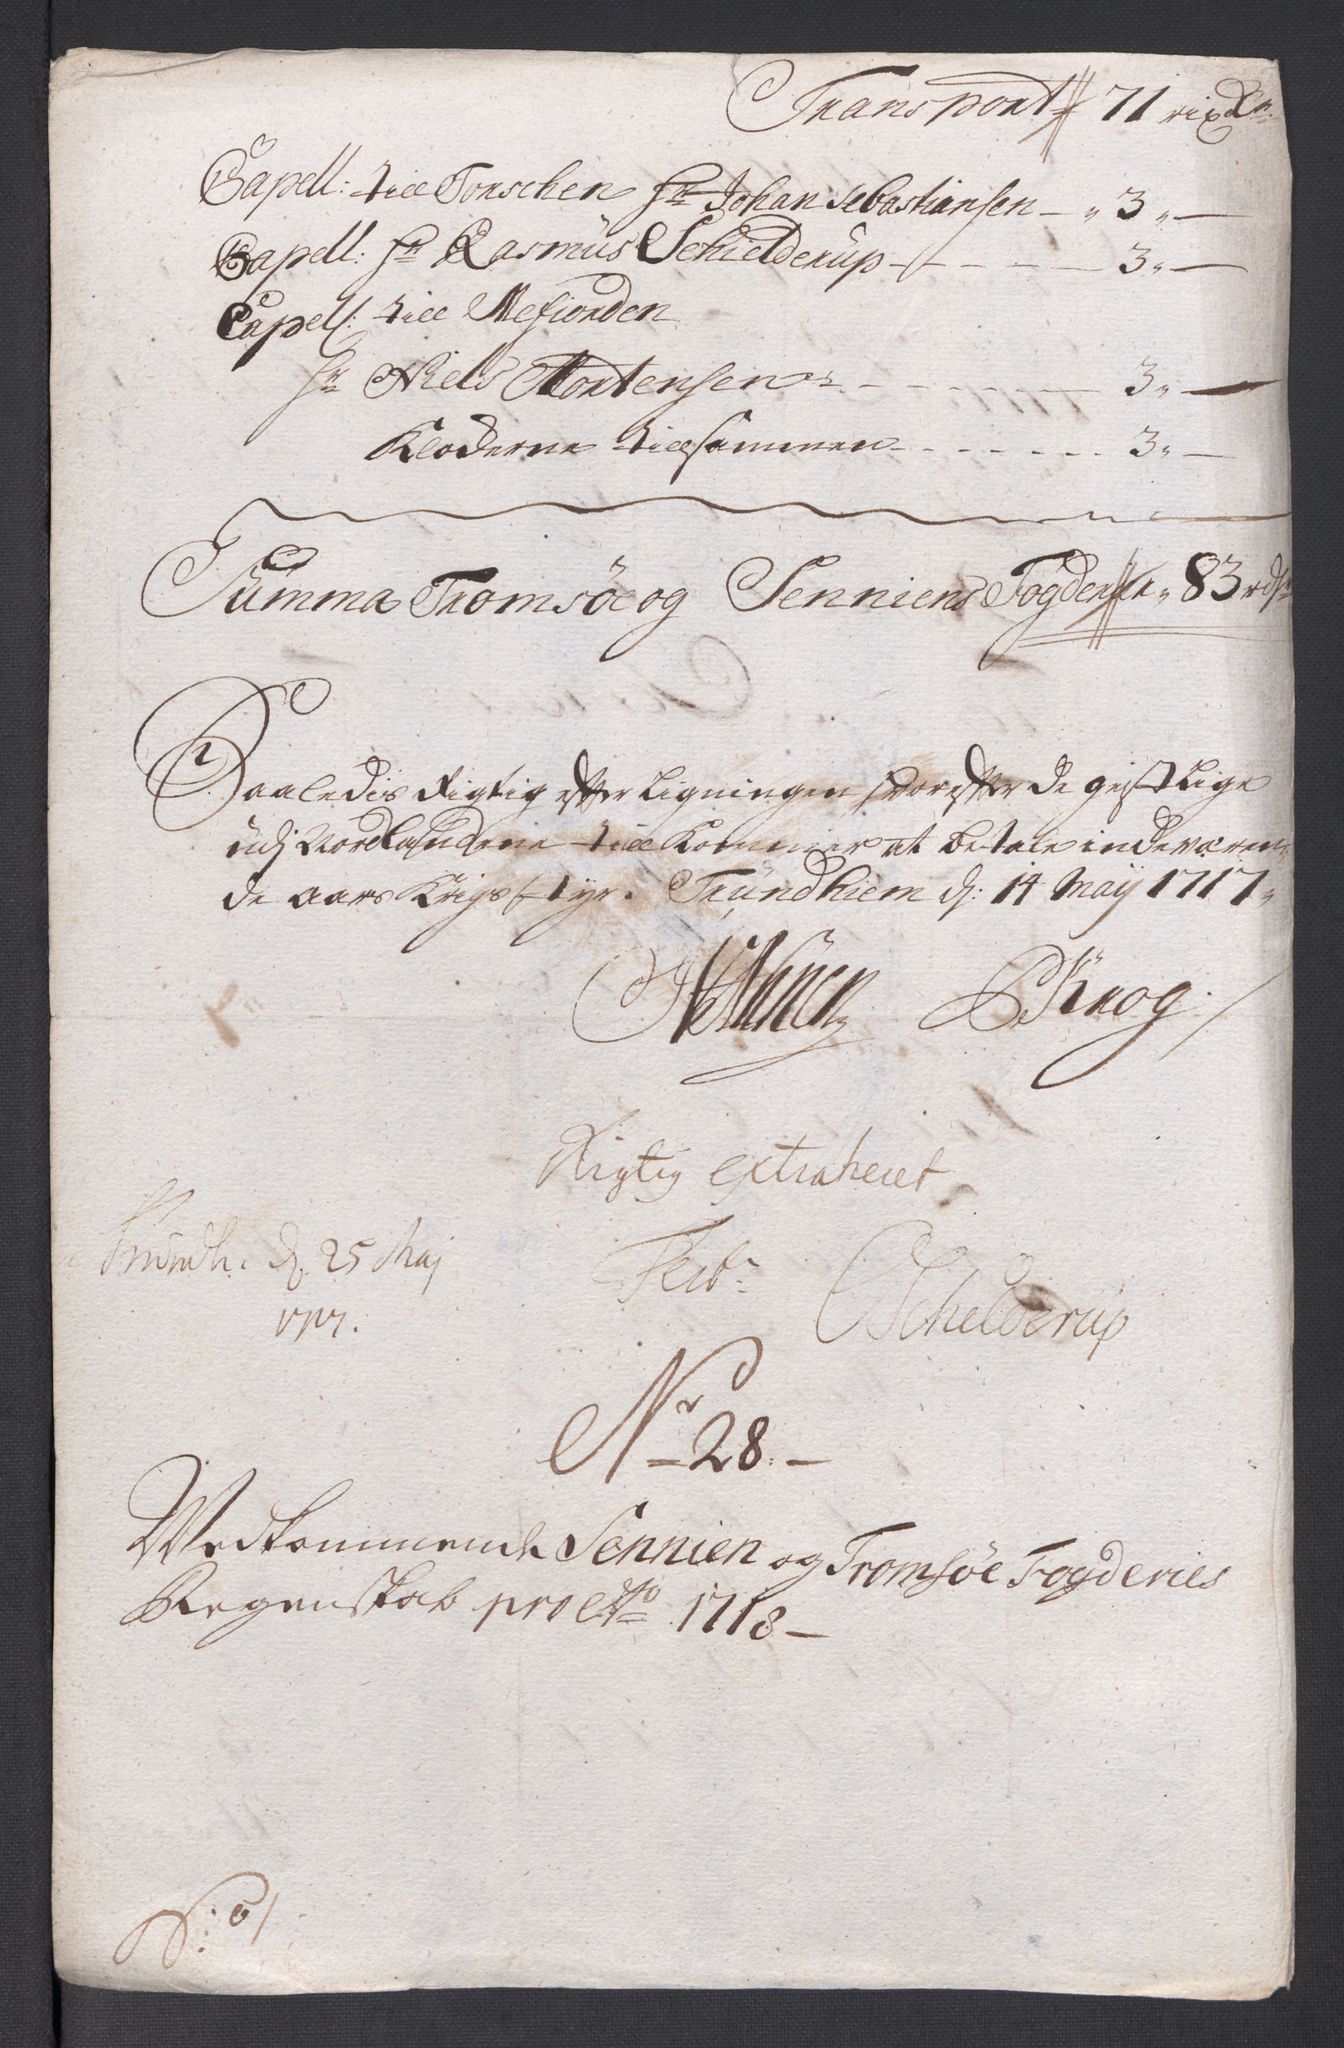 Transport 71 rixdr:
Capell: till Torschen Hr Johan Sebastiansen - „ 3 „ -
Capell: Hr Rasmus Schielderup - - - - - 3 „ -
Capell: till Mefiorden
Hr Niels Mortensen - - - - - 3 „ -
Kloderne tillsammen - - - - - - 3 „ -
Summa Tromsöe og Senniens Fogderie „ 83 rdr
Saaledis Rigtig effter Ligningen hvoreffter de geistlige
udj Nordlandene till kommer at betale indeværen-
de aars Krigs styr. Trundhiem d: 14 Maij 1717 „
Krog.
Rigtig extraheret
Trundh. d. 25 Maj
Test:
CSchelderup
1717.
Nr 28. -
Wedkommende Sennien og Tromsöe Fogderies
Regenskab pro Ao 1718 -